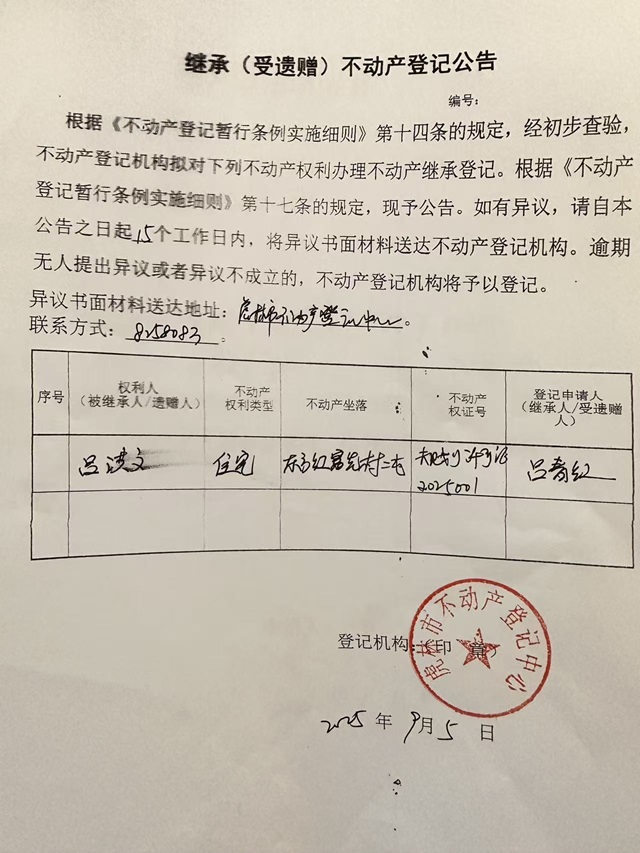 继承（受遗赠）不动产登记公告
编号：
根据《不动产登记暂行条例实施细则》第十四条的规定，经初步查验，
不动产登记机构拟对下列不动产权利办理不动产继承登记。根据《不动产
登记暂行条例实施细则》第十七条的规定，现予公告。如有异议，请自本
公告之日起15个工作日内，将异议书面材料送达不动产登记机构。逾期
无人提出异议或者异议不成立的，不动产登记机构将予以登记。
异议书面材料送达地址：虎林市不动产登记中心。
联系方式：8258083。
序号 权利人（被继承人/遗赠人） 不动产权利类型 不动产坐落 不动产权证号 登记申请人（继承人/受遗赠人）
吕洪文 住宅 2025001 吕春红
登记机构：（印章）
虎林市不动产登记中心
2025年9月5日